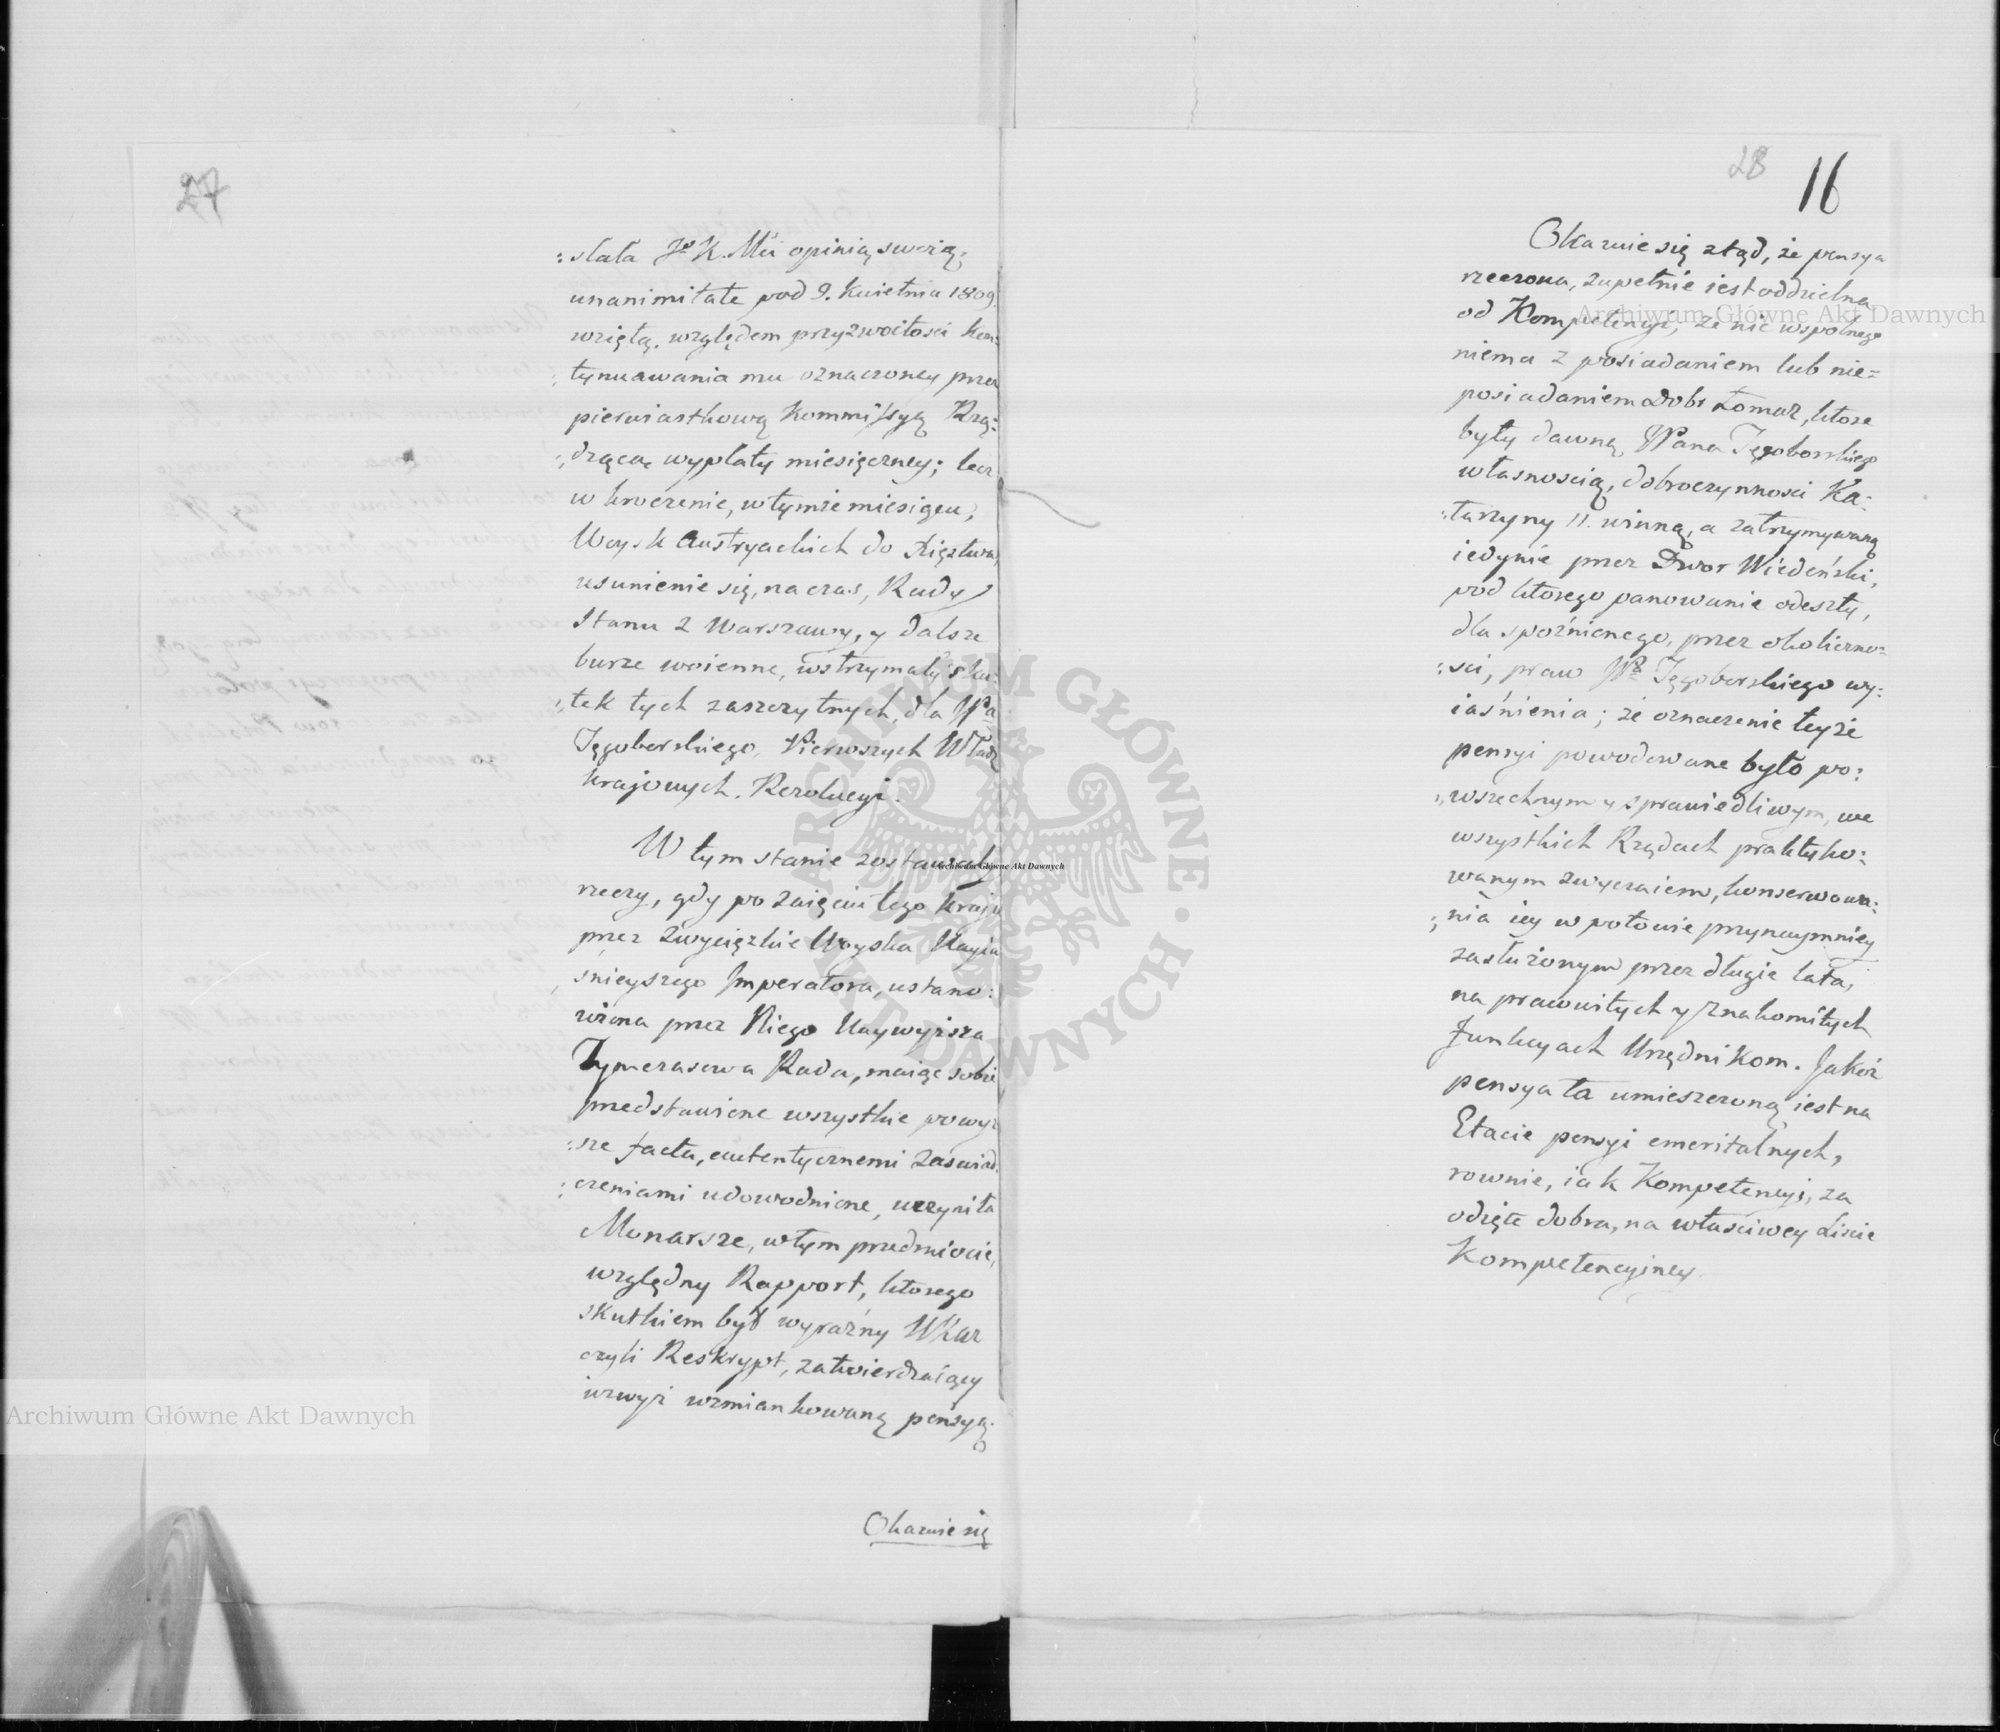 27
:słała Jo K. Mci opinią swoią,
unanimitate pod 9. Kwietnia 1809
wziętą, względem przyzwoitosci kon:
:tynuowania mu oznaczoney przez
pierwiastkową Kommissyą Rzą:
:dzącą wypłaty miesięczney; lecz
wkroczenie, w tymże miesiącu,
Woysk Austryackich do Xięztwa,
usunienie się, na czas, Rady
Stanu z Warszawy, y dalsze
burze woienne, wstrzymały sku:
:tek tych zaszczytnych, dla WPa
Tęgoborskiego, Pierwszych Władz
krajowych, Rezolucyi.
W tym stanie zostawały
rzeczy, gdy po zaięciu tego kraju
przez zwycięzkie Woyska Nayia
:śnieyszego Imperatora, ustano:
wiona przez Niego Naywyższa
Tymczasowa Rada, maiąc sobie
przedstawione wszystkie powyż
:sze facta, autentycznemi zaswiad
:czeniami udowodnione, uczyniła
Monarsze, w tym przedmiocie,
względny Rapport, ktorego
skutkiem był wyraźny Ukaz
czyli Reskrypt, zatwierdzaiący
wzwyż wzmiankowaną pensyą.
Okazuie się
28
16
Okazuie się ztąd, że pensya
rzeczona, zupełnie iest oddzielna
od Kompetencyi; że nic wspolnego
niema z posiadaniem lub nie=
posiadaniem Dobr Łomaz, ktore
były dawną, WPana Tęgoborskiego
własnoscią, dobroczynnosci Ka:
:tarzyny II. winną, a zatrzymywaną
iedynie przez Dwor Wiedeński,
pod ktorego panowanie odeszły,
dla spoźnionego, przez okoliczno=
:sci, praw WPa Tęgoborskiego wy:
iaśnienia; że oznaczenie teyże
pensyi powodowane było po:
:wszechnym y sprawiedliwym, we
wszystkich Rządach praktyko:
wanym zwyczaiem, konserwowa:
:nia iey w połowie przynaymniey
zasłużonym przez długie lata,
na prawowitych y znakomitych
Funkcyach Urzędnikom. Jakoż
pensya ta umieszczoną iest na
Etacie pensyi emeritalnych,
rownie, iak Kompetencyi, za
odięte dobra, na własciwey Liscie
Kompetencyiney.
Archiwum Główne Akt Dawnych
Archiwum Główne Akt Dawnych
Archiwum Główne Akt Dawnych
ARCHIWUM GŁÓWNE • AKT DAWNYCH •